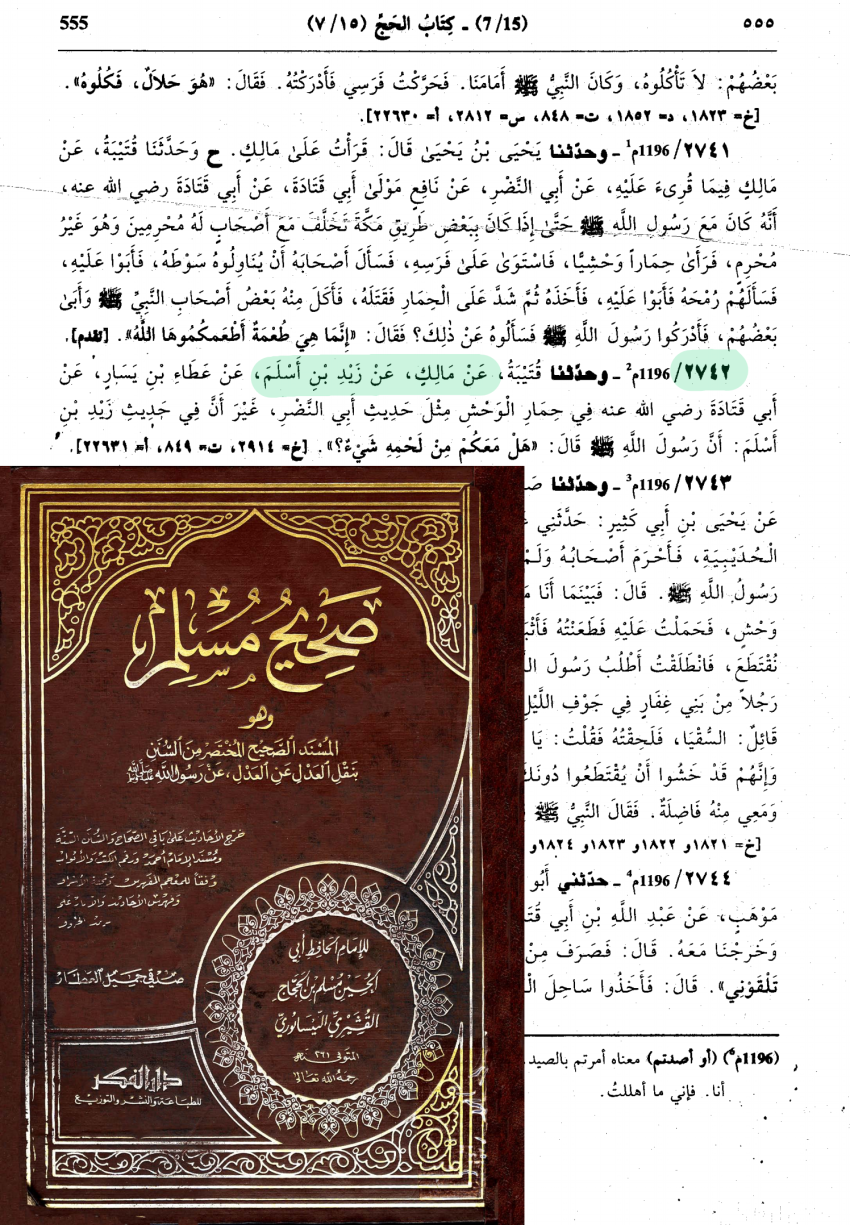 ٥٥٥ (7/15) ـ كِتَابُ الحَجِّ (٧/١٥) 555
بَعْضُهُمْ: لاَ تَأْكُلُوهُ، وَكَانَ النَّبِيُّ ﷺ أَمَامَنَا. فَحَرَّكْتُ فَرَسِي فَأَدْرَكْتُهُ. فَقَالَ: «هُوَ حَلاَلٌ، فَكُلُوهُ».
[خ= ١٨٢٣، د= ١٨٥٢، ت= ٨٤٨، س= ٢٨١٢، أ= ٢٢٦٣٠].
٢٧٤١/ 1196م¹ ـ وحدّثنا يَحْيَى بْنُ يَحْيَىٰ قَالَ: قَرَأْتُ عَلَىٰ مَالِكٍ. ح وَحَدَّثَنَا قُتَيْبَةُ، عَنْ
مَالِكٍ فِيمَا قُرِىءَ عَلَيْهِ، عَنْ أَبِي النَّضْرِ، عَنْ نَافِعٍ مَوْلَىٰ أَبِي قَتَادَةَ، عَنْ أَبِي قَتَادَةَ رضي الله عنه،
أَنَّهُ كَانَ مَعَ رَسُولِ اللَّهِ ﷺ حَتَّىٰ إِذَا كَانَ بِبَعْضِ طَرِيقِ مَكَّةَ تَخَلَّفَ مَعَ أَصْحَابٍ لَهُ مُحْرِمِينَ وَهُوَ غَيْرُ
مُحْرِمٍ، فَرَأَىٰ حِمَاراً وَحْشِيًّا، فَاسْتَوَىٰ عَلَىٰ فَرَسِهِ، فَسَأَلَ أَصْحَابَهُ أَنْ يُنَاوِلُوهُ سَوْطَهُ، فَأَبَوْا عَلَيْهِ،
فَسَأَلَهُمْ رُمْحَهُ فَأَبَوْا عَلَيْهِ، فَأَخَذَهُ ثُمَّ شَدَّ عَلَى الْحِمَارِ فَقَتَلَهُ، فَأَكَلَ مِنْهُ بَعْضُ أَصْحَابِ النَّبِيِّ ﷺ وَأَبَىٰ
بَعْضُهُمْ، فَأَدْرَكُوا رَسُولَ اللَّهِ ﷺ فَسَأَلُوهُ عَنْ ذٰلِكَ؟ فَقَالَ: «إِنَّمَا هِيَ طُعْمَةٌ أَطْعَمَكُمُوهَا اللَّهُ». [تقدم].
٢٧٤٢/ 1196م² ـ وحدّثنا قُتَيْبَةُ، عَنْ مَالِكٍ، عَنْ زَيْدِ بْنِ أَسْلَمَ، عَنْ عَطَاءِ بْنِ يَسَارٍ، عَنْ
أَبِي قَتَادَةَ رضي الله عنه فِي حِمَارِ الْوَحْشِ مِثْلَ حَدِيثِ أَبِي النَّضْرِ، غَيْرَ أَنَّ فِي حَدِيثِ زَيْدِ بْنِ
أَسْلَمَ: أَنَّ رَسُولَ اللَّهِ ﷺ قَالَ: «هَلْ مَعَكُمْ مِنْ لَحْمِهِ شَيْءٌ؟». [خ= ٢٩١٤، ت= ٨٤٩، أ= ٢٢٦٣١].
٢٧٤٣/ 1196م³ ـ وحدّثنا
عَنْ يَحْيَى بْنِ أَبِي كَثِيرٍ: حَدَّثَنِي
الْحُدَيْبِيَةِ، فَأَحْرَمَ أَصْحَابُهُ وَلَمْ
رَسُولُ اللَّهِ ﷺ. قَالَ: فَبَيْنَمَا أَنَا
وَحْشٍ، فَحَمَلْتُ عَلَيْهِ فَطَعَنْتُهُ
نُقْتَطَعَ، فَانْطَلَقْتُ أَطْلُبُ رَسُولَ
رَجُلاً مِنْ بَنِي غِفَارٍ فِي جَوْفِ اللَّيْلِ
قَائِلٌ: السُّقْيَا، فَلَحِقْتُهُ فَقُلْتُ: يَا
وَإِنَّهُمْ قَدْ خَشُوا أَنْ يُقْتَطَعُوا دُونَكَ
وَمَعِي مِنْهُ فَاضِلَةٌ. فَقَالَ النَّبِيُّ ﷺ
[خ= ١٨٢١و ١٨٢٢و ١٨٢٣و ١٨٢٤و
٢٧٤٤/ 1196م⁴ ـ حدّثني أَبُو
مَوْهَبٍ، عَنْ عَبْدِ اللَّهِ بْنِ أَبِي
وَخَرَجْنَا مَعَهُ. قَالَ: فَصَرَفَ مِنْ
تَلْقَوْنِي». قَالَ: فَأَخَذُوا سَاحِلَ
(1196م⁵) (أو أصدتم) معناه أمرتم بالصيد
أنا. فإني ما أهللتُ.
صَحِيحُ مُسْلِم
وهو
المُسْنَد الصَّحِيح المُخْتَصَر مِنَ السُّنَن
بنَقْلِ العَدْلِ عَنِ العَدْلِ، عَنْ رَسُولِ اللَّهِ ﷺ
خرج الأحاديث على باقي الصحاح والسنن الستة
ومسند الإمام أحمد ورقم الكتب والأبواب
وفقاً للمعجم المفهرس وتحفة الأشراف
صدقي جميل العطار
للإمام الحافظ أبي
الحسين مسلم بن الحجاج
القشيري النيسابوري
المتوفى ٢٦١ هـ
رحمه الله تعالى
دار الفكر
للطباعة والنشر والتوزيع